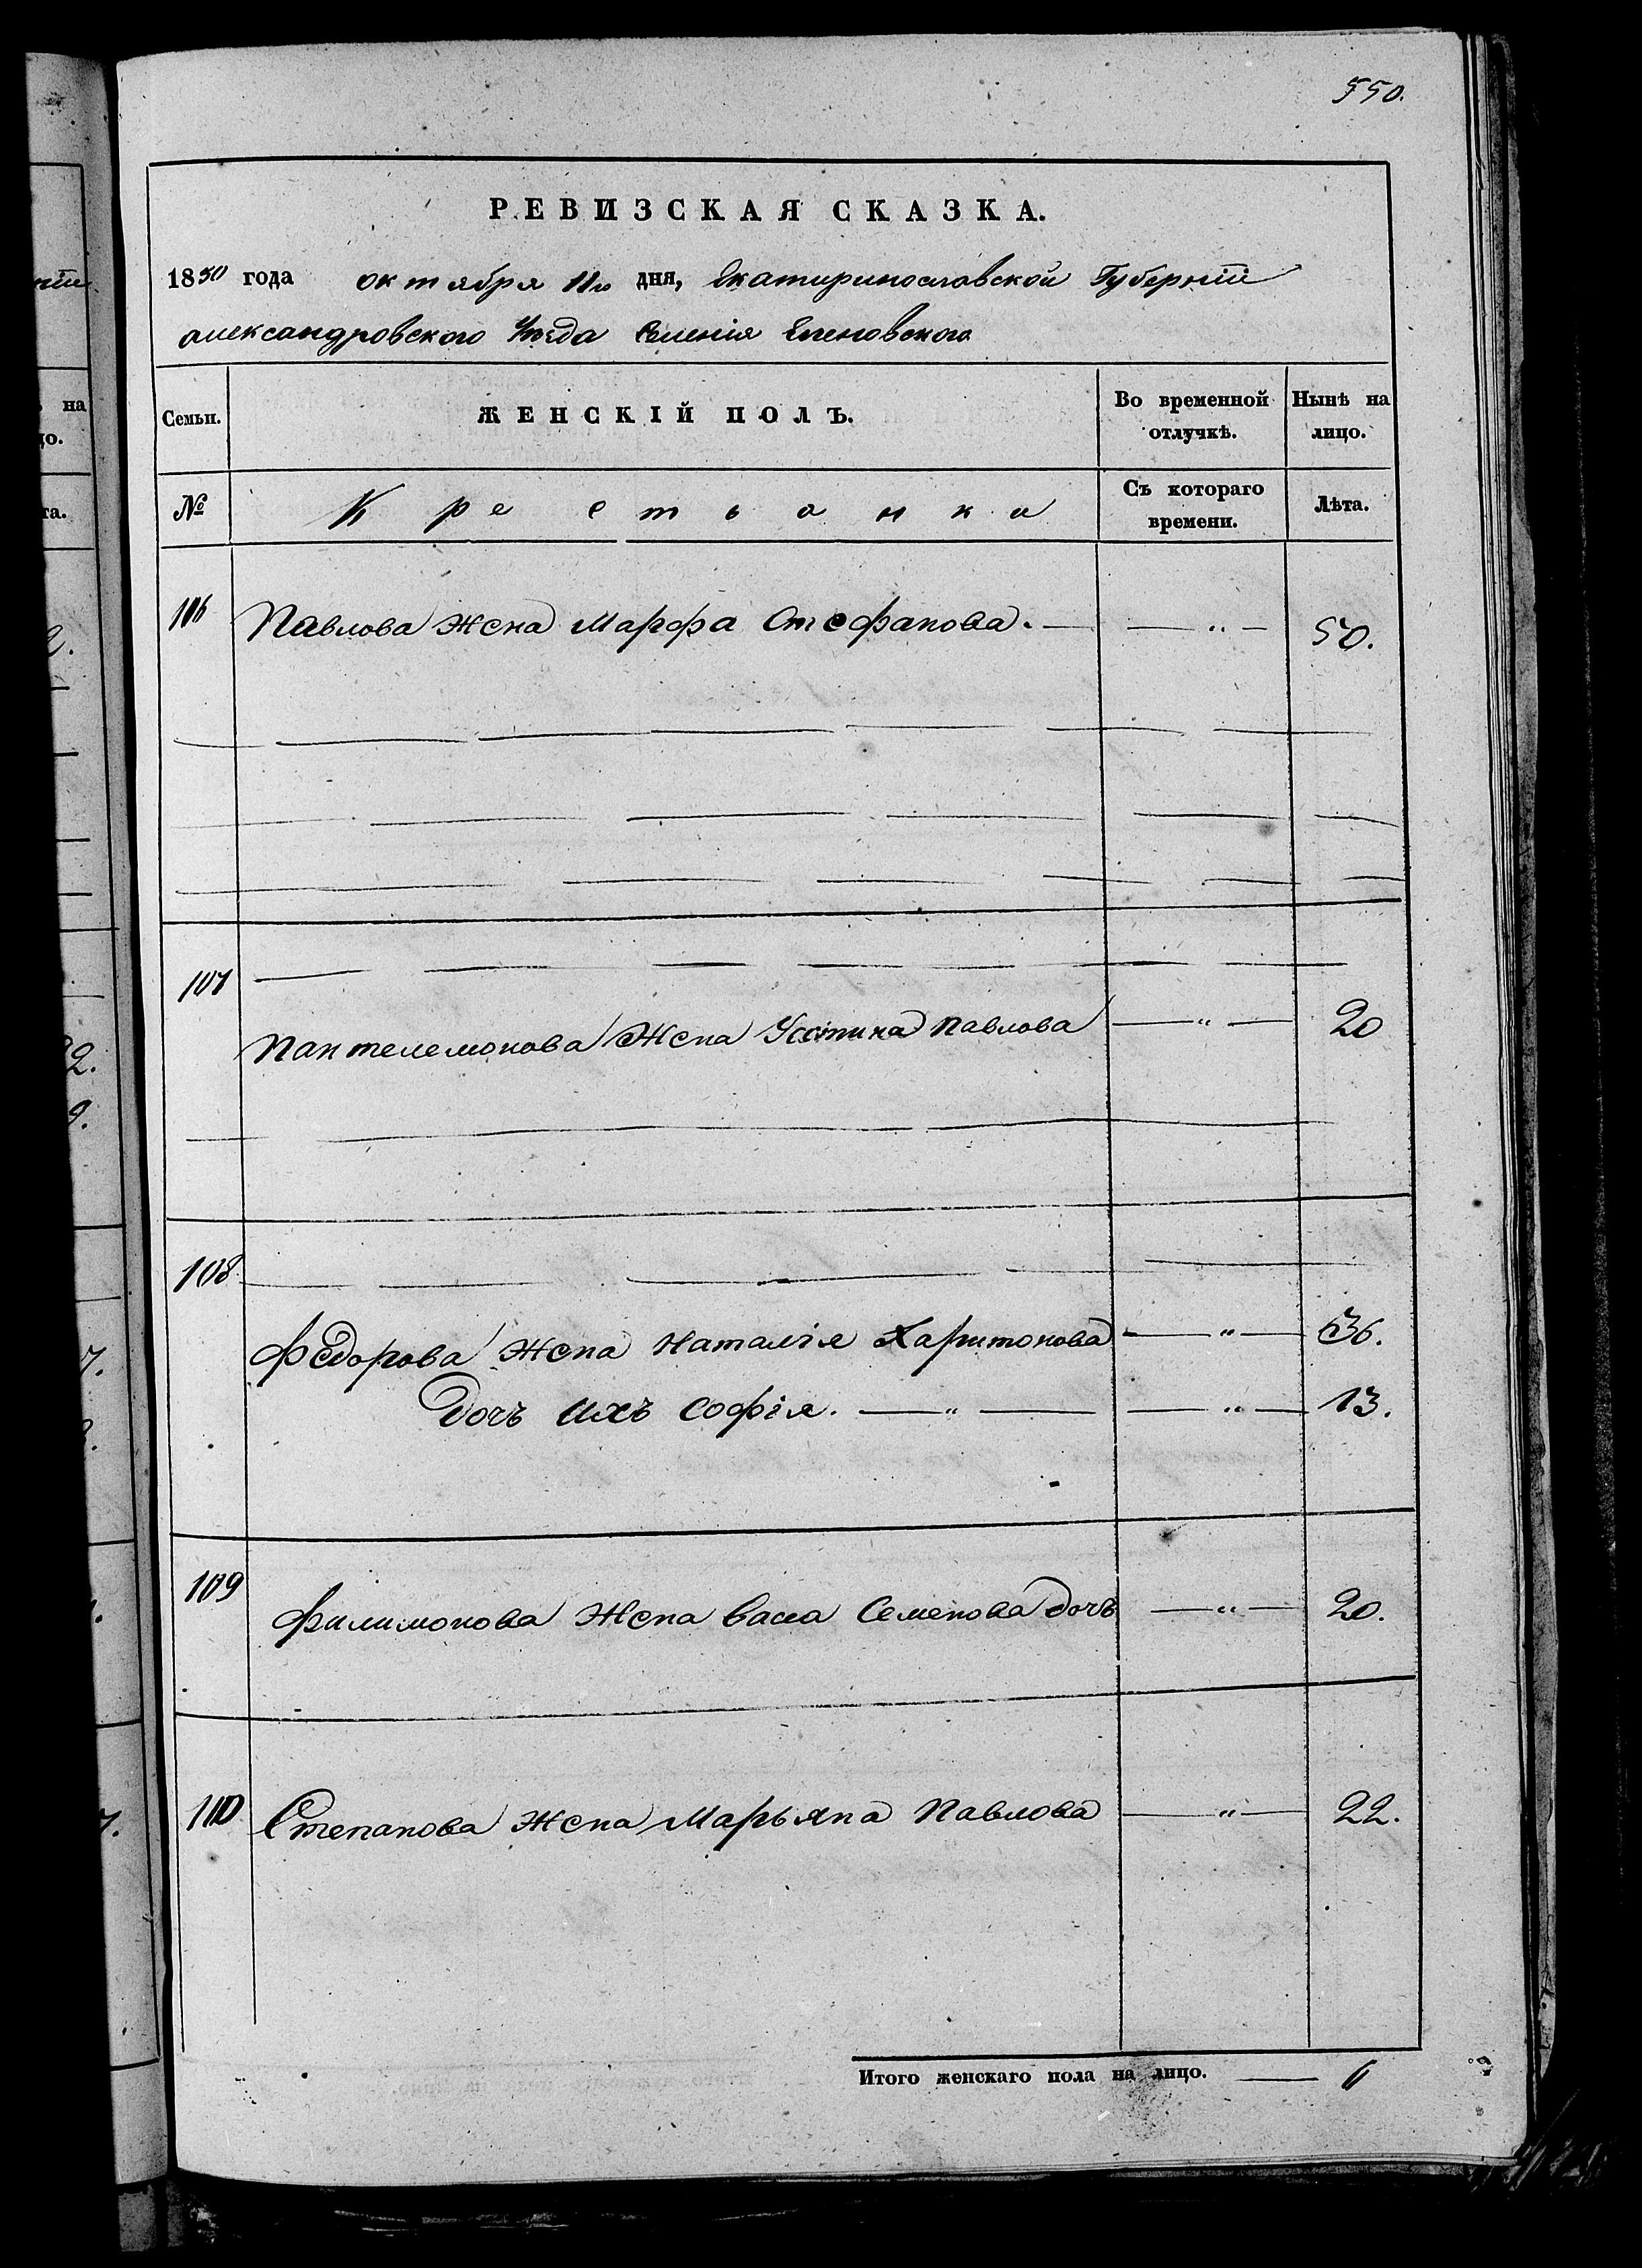 550.
РЕВИЗСКАЯ СКАЗКА.
1850 года октября 11го дня, Екатиринославской Губерніи
александровского Уѣзда Селенія Еленовского
Семьи. ЖЕНСКІЙ ПОЛЪ. Во временной отлучкѣ. Нынѣ на лицо.
№ Крестьянки Съ котораго времени. Лѣта.
106 Павлова жена Марфа Стефанова. — — " — 50.
107
Пантелемонова Жена Устина Павлова — " — 20
108
Федорова жена Наталія Харитонова — " — 36.
Дочь ихъ Софія. — " — — " — 13.
109
Филимонова Жена Васса Семенова дочь — " — 20.
110 Степанова жена Марьяна Павлова — " — 22.
Итого женскаго пола на лицо. — 6